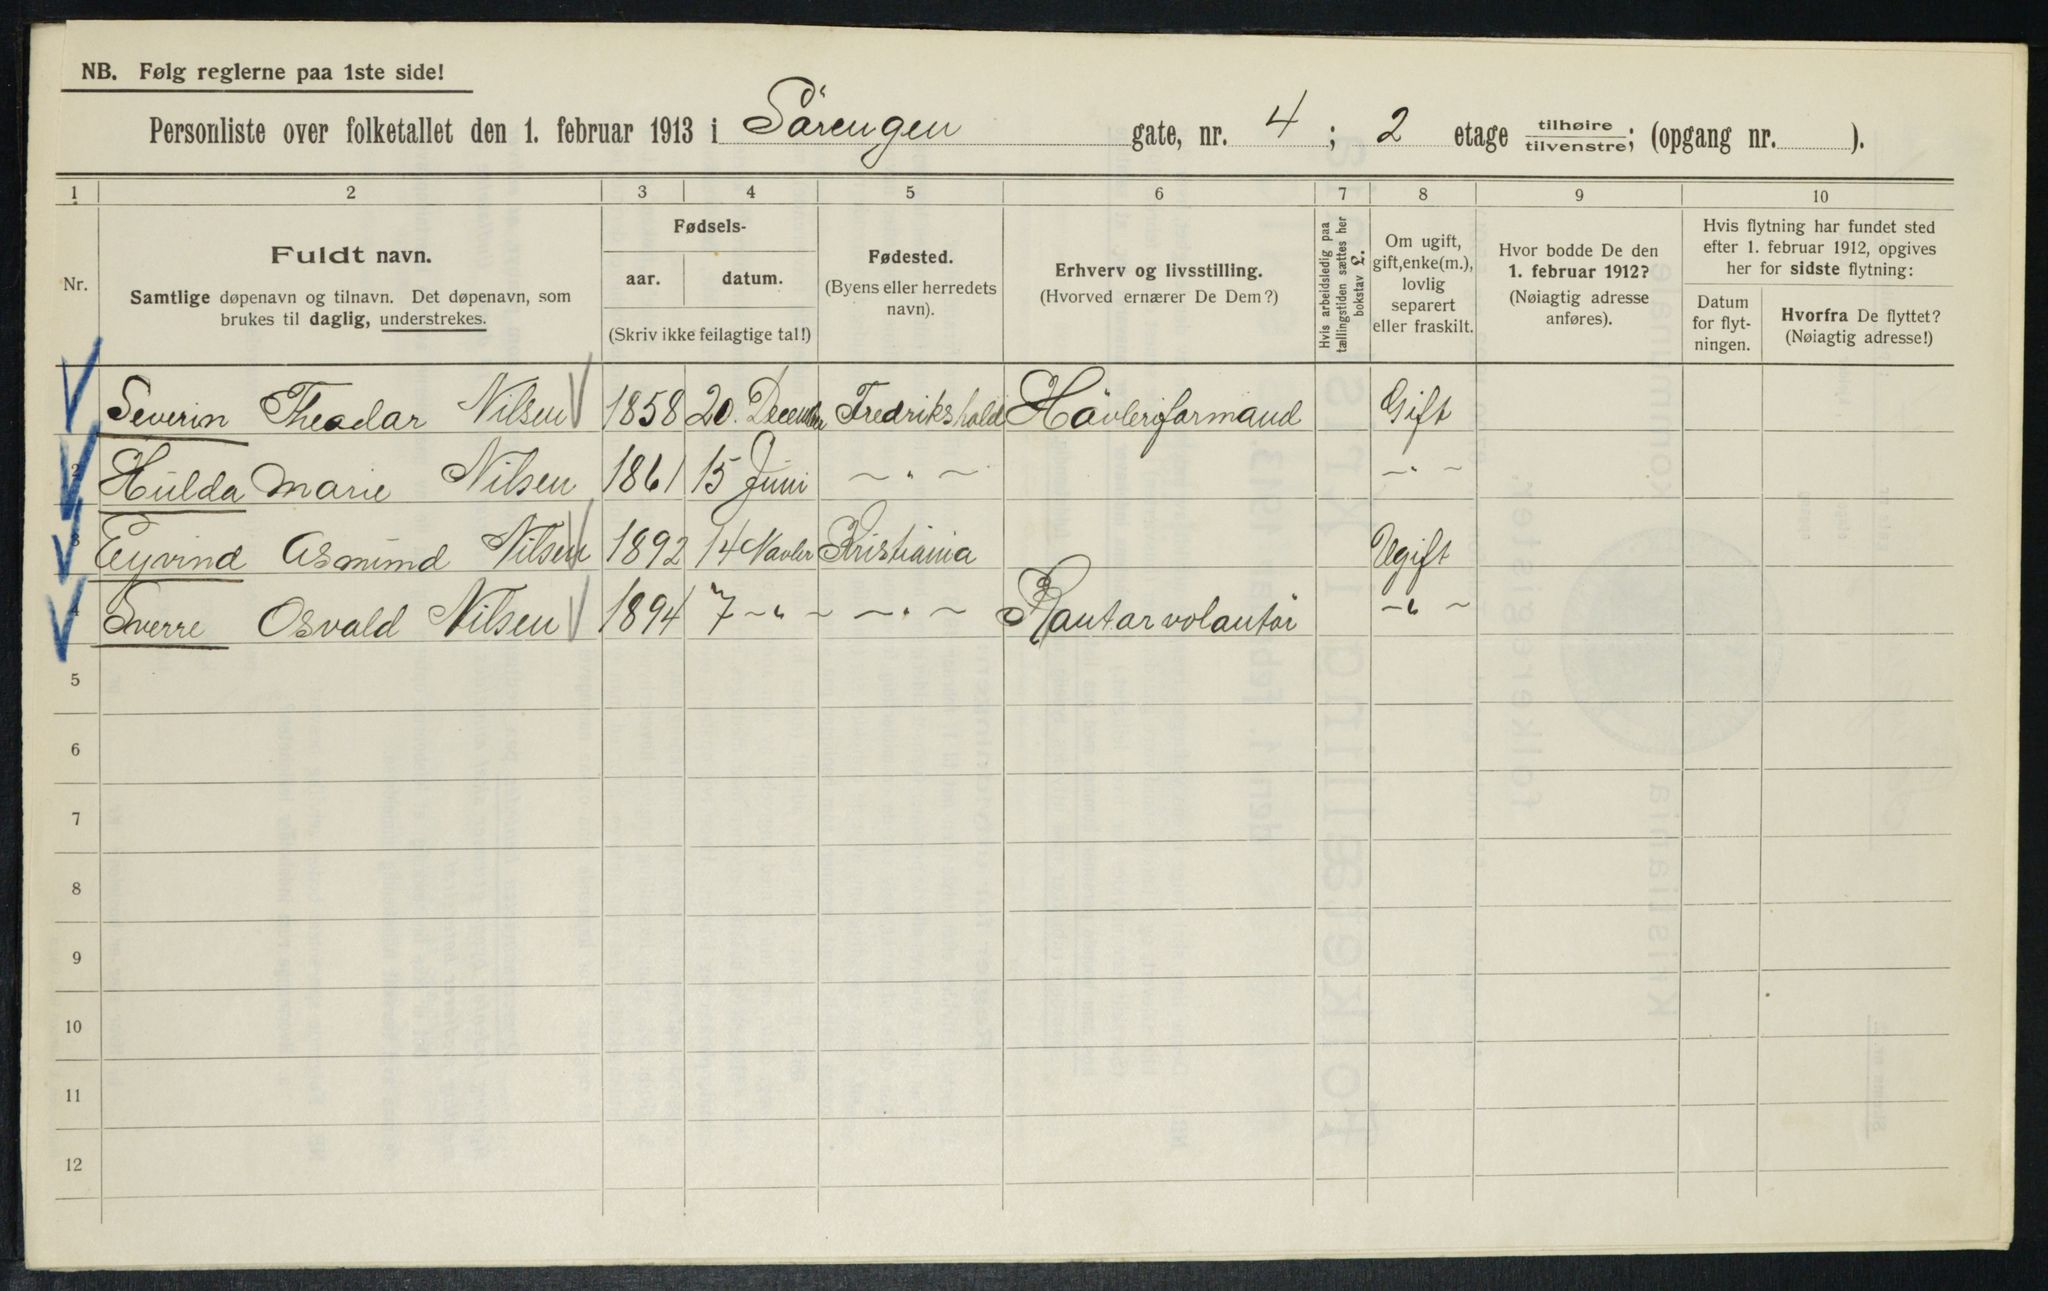 NB. Følg reglerne paa 1ste side!
Personliste over folketallet den 1. februar 1913 i Sörengen gate, nr. 4 ; 2 etage tilhøire tilvenstre; (opgang nr. ).
1 2 3 4 5 6 7 8 9 10
Nr.
Fuldt navn.
Samtlige døpenavn og tilnavn. Det døpenavn, som
brukes til daglig, understrekes.
Fødsels-
aar. datum.
(Skriv ikke feilagtige tal!)
Fødested.
(Byens eller herredets
navn).
Erhverv og livsstilling.
(Hvorved ernærer De Dem?)
Hvis arbeidsledig paa
tællingstiden sættes her
bokstav L.
Om ugift,
gift, enke(m.),
lovlig
separert
eller fraskilt.
Hvor bodde De den
1. februar 1912?
(Nøiagtig adresse
anføres).
Hvis flytning har fundet sted
efter 1. februar 1912, opgives
her for sidste flytning:
Datum
for flyt-
ningen.
Hvorfra De flyttet?
(Nøiagtig adresse!)
Severin Theodor Nilsen 1858 20. December Fredrikshald Hövleriformand Gift
2 Hulda Marie Nilsen 1861 15 Juni – " – – " –
3 Eyvind Asmund Nilsen 1892 14 Novbr Kristiania Ugift
4 Sverre Osvald Nilsen 1894 7 – " – – " – Kontorvolontör – " –
5
6
7
8
9
10
11
12